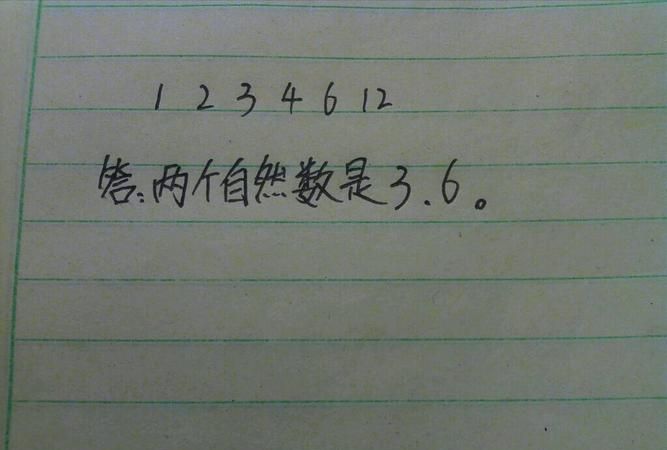 1 2 3 4 6 12
答:两个自然数是3.6。